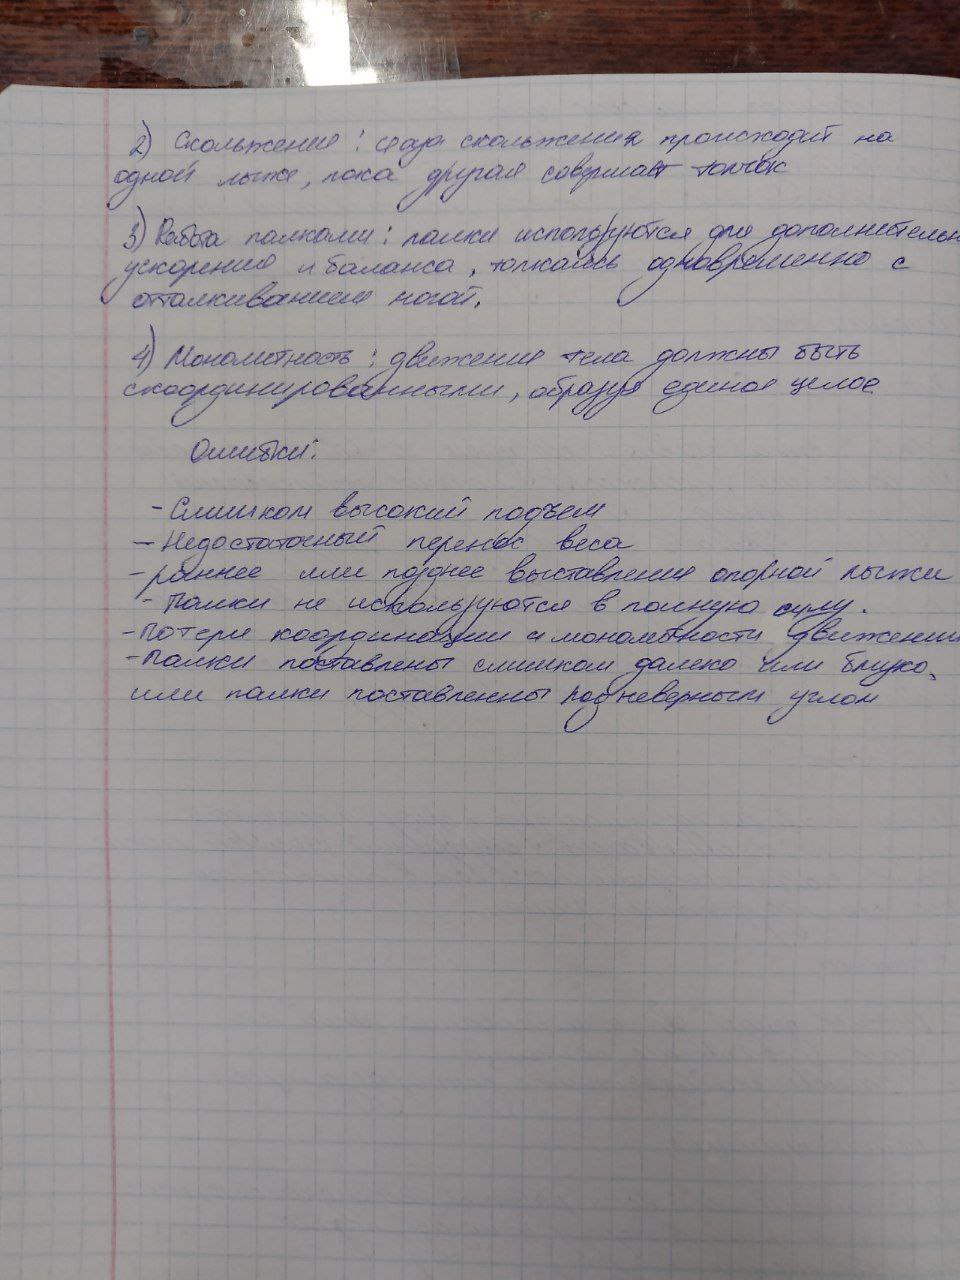 2) Скольжение: фаза скольжения происходит на
одной лыже, пока другая совершает толчок
3) Работа палками: палки используются для дополнительн
ускорения и баланса, толкаясь одновременно с
отталкиванием ногой.
4) Монолитность: движения тела должны быть
скоординированными, образуя единое целое
Ошибки:
- Слишком высокий подъем
- Недостаточный перенос веса
- раннее или позднее выставление опорной лыжи
- Палки не используются в полную силу.
- Потеря координации и монолитности движений
- Палки поставлены слишком далеко или близко,
или палки поставленны под неверным углом